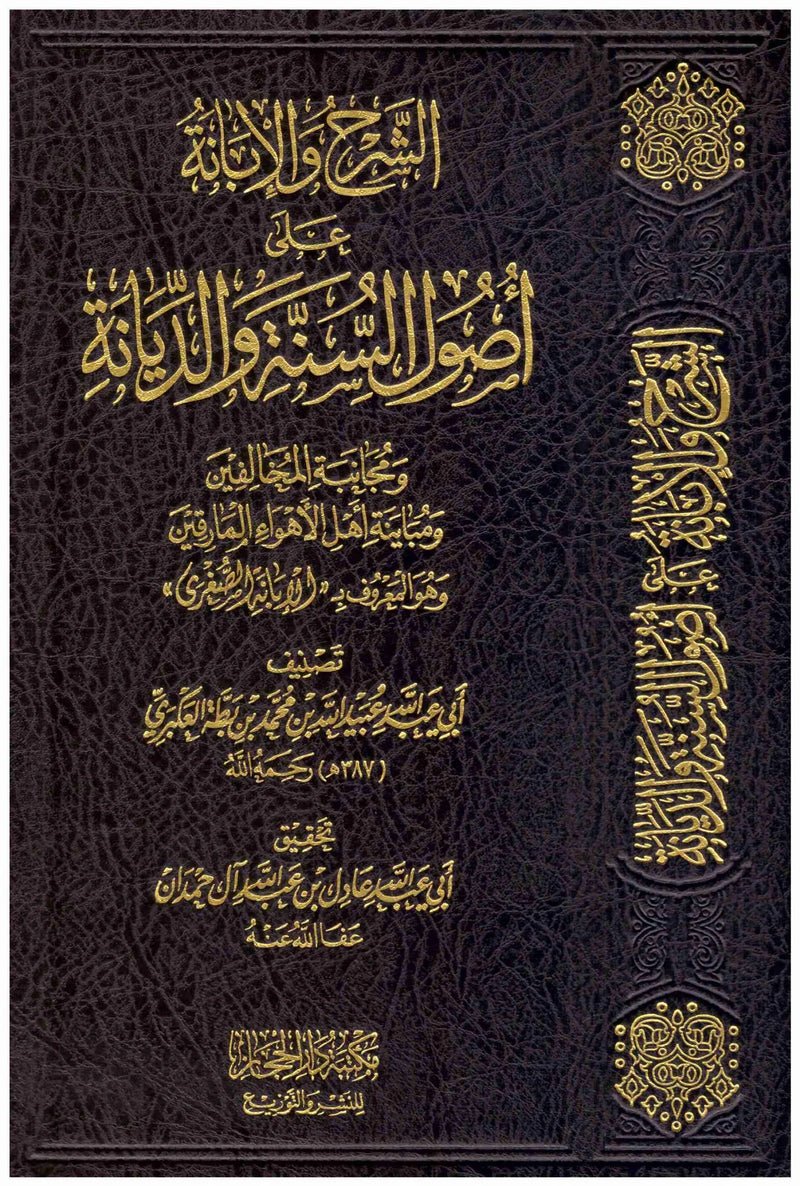 الشَّرحُ وَالإبَانَةُ
عَلَى
أُصُولِ السُّنَّةِ وَالدِّيَانَةِ
وَمُجَانَبَةِ المُخَالِفِينَ
وَمُبَايَنَةِ أَهْلِ الأَهْوَاءِ المَارِقِينَ
وَهُوَ المَعْرُوفُ بِـ «الإِبَانَةِ الصُّغْرَى»
تَصْنِيف
أَبِي عَبْدِ اللَّهِ عُبَيْدِ اللَّهِ بْنِ مُحَمَّدِ بْنِ بَطَّةَ العُكْبَرِيِّ
(٣٨٧هـ) رَحِمَهُ اللَّهُ
تَحْقِيق
أَبِي عَبْدِ اللَّهِ عَادِلِ بْنِ عَبْدِ اللَّهِ آلِ حَمْدَان
عَفَا اللَّهُ عَنْهُ
مَكْتَبَةُ دَارِ الحِجَازِ
لِلنَّشْرِ وَالتَّوْزِيعِ
الشَّرحُ وَالإبَانَةُ عَلَى أُصُولِ السُّنَّةِ وَالدِّيَانَةِ